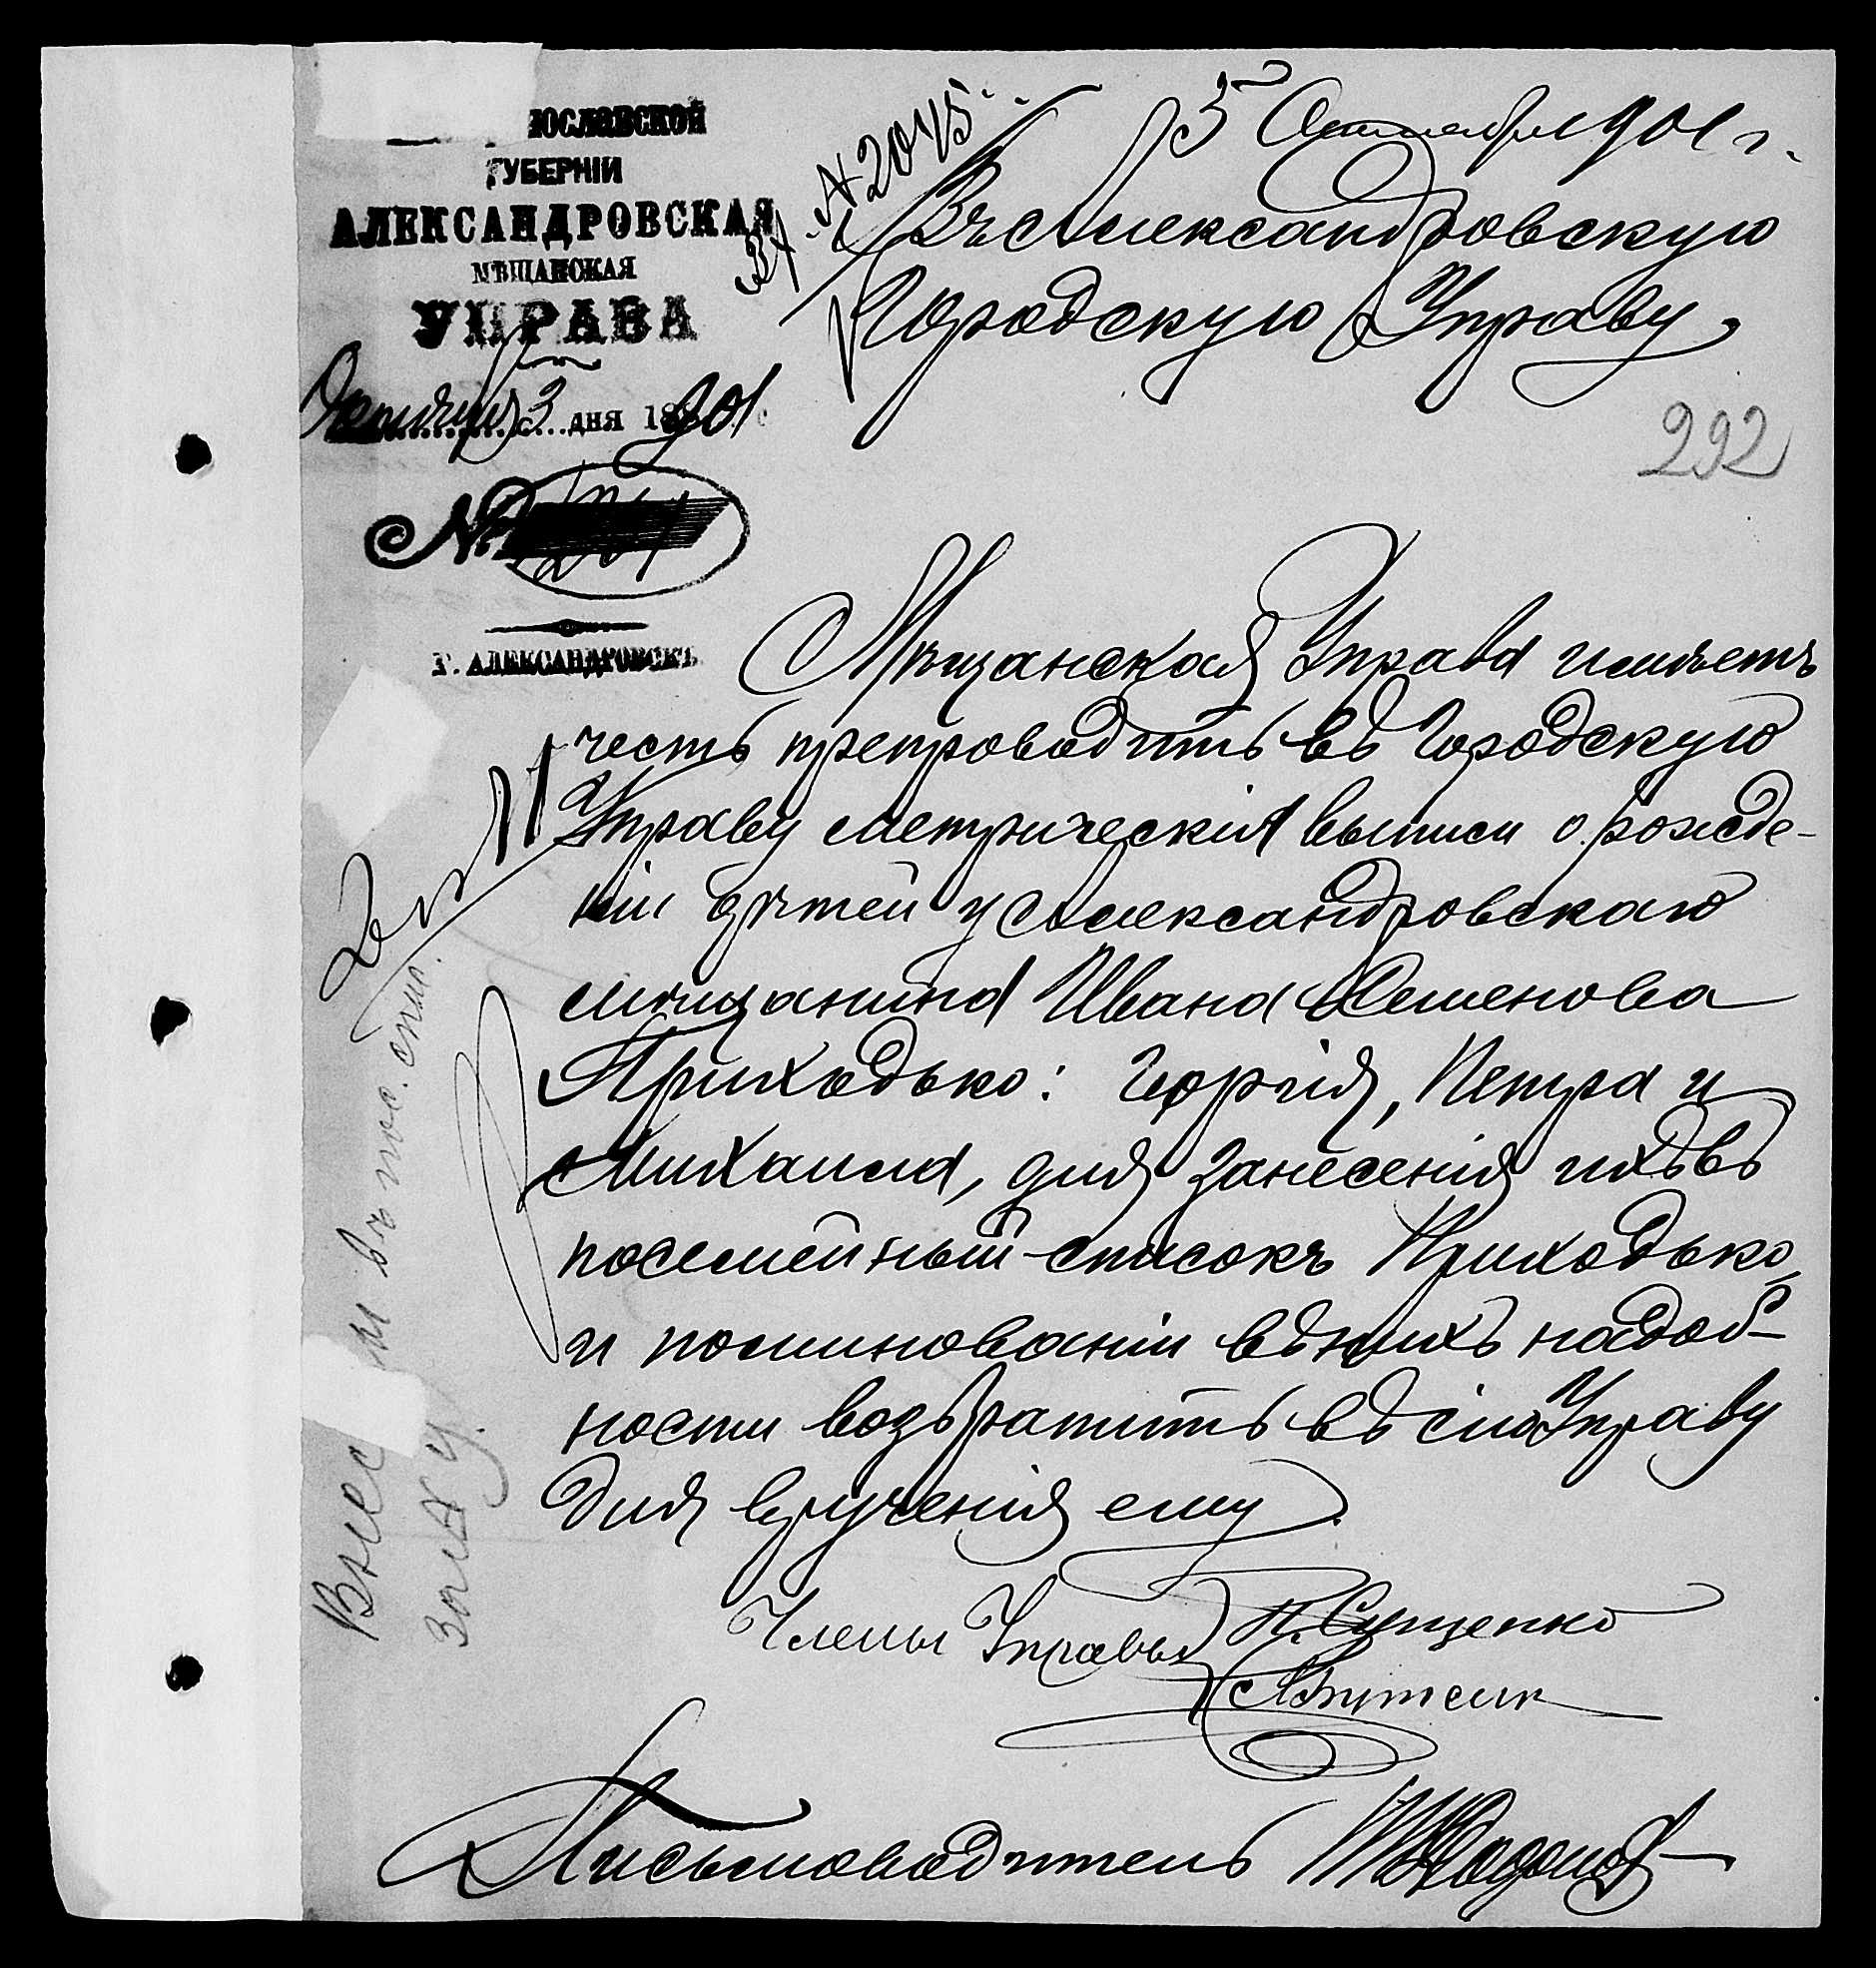 ославской
ГУБЕРНІИ
АЛЕКСАНДРОВСКАЯ
МѢЩАНСКАЯ
УПРАВА
3 дня 1901
№
Г. АЛЕКСАНДРОВСКЪ
№ 2045
5 901 г.
Въ Александровскую
Городскую Управу
292
Мѣщанская Управа имѣетъ
честь препроводить въ Городскую
Управу метрическія выписи о рожде-
ніи дѣтей у Александровскаго
мѣщанина Ивана Семенова
Приходько: Георгія, Петра и
Михаила, для занесенія ихъ въ
посемейный списокъ Приходько,
и поминованіи въ нихъ надоб-
ности возвратить въ сію Управу
для врученія ему.
Члены Управы П. Сущенко
Письмоводитель
Внес въ пос. спис.